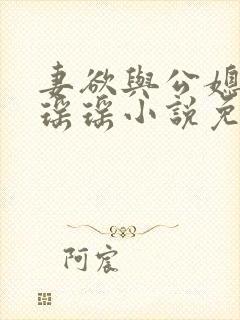 妻欲與公媳
瑤瑤小說免
阿宸